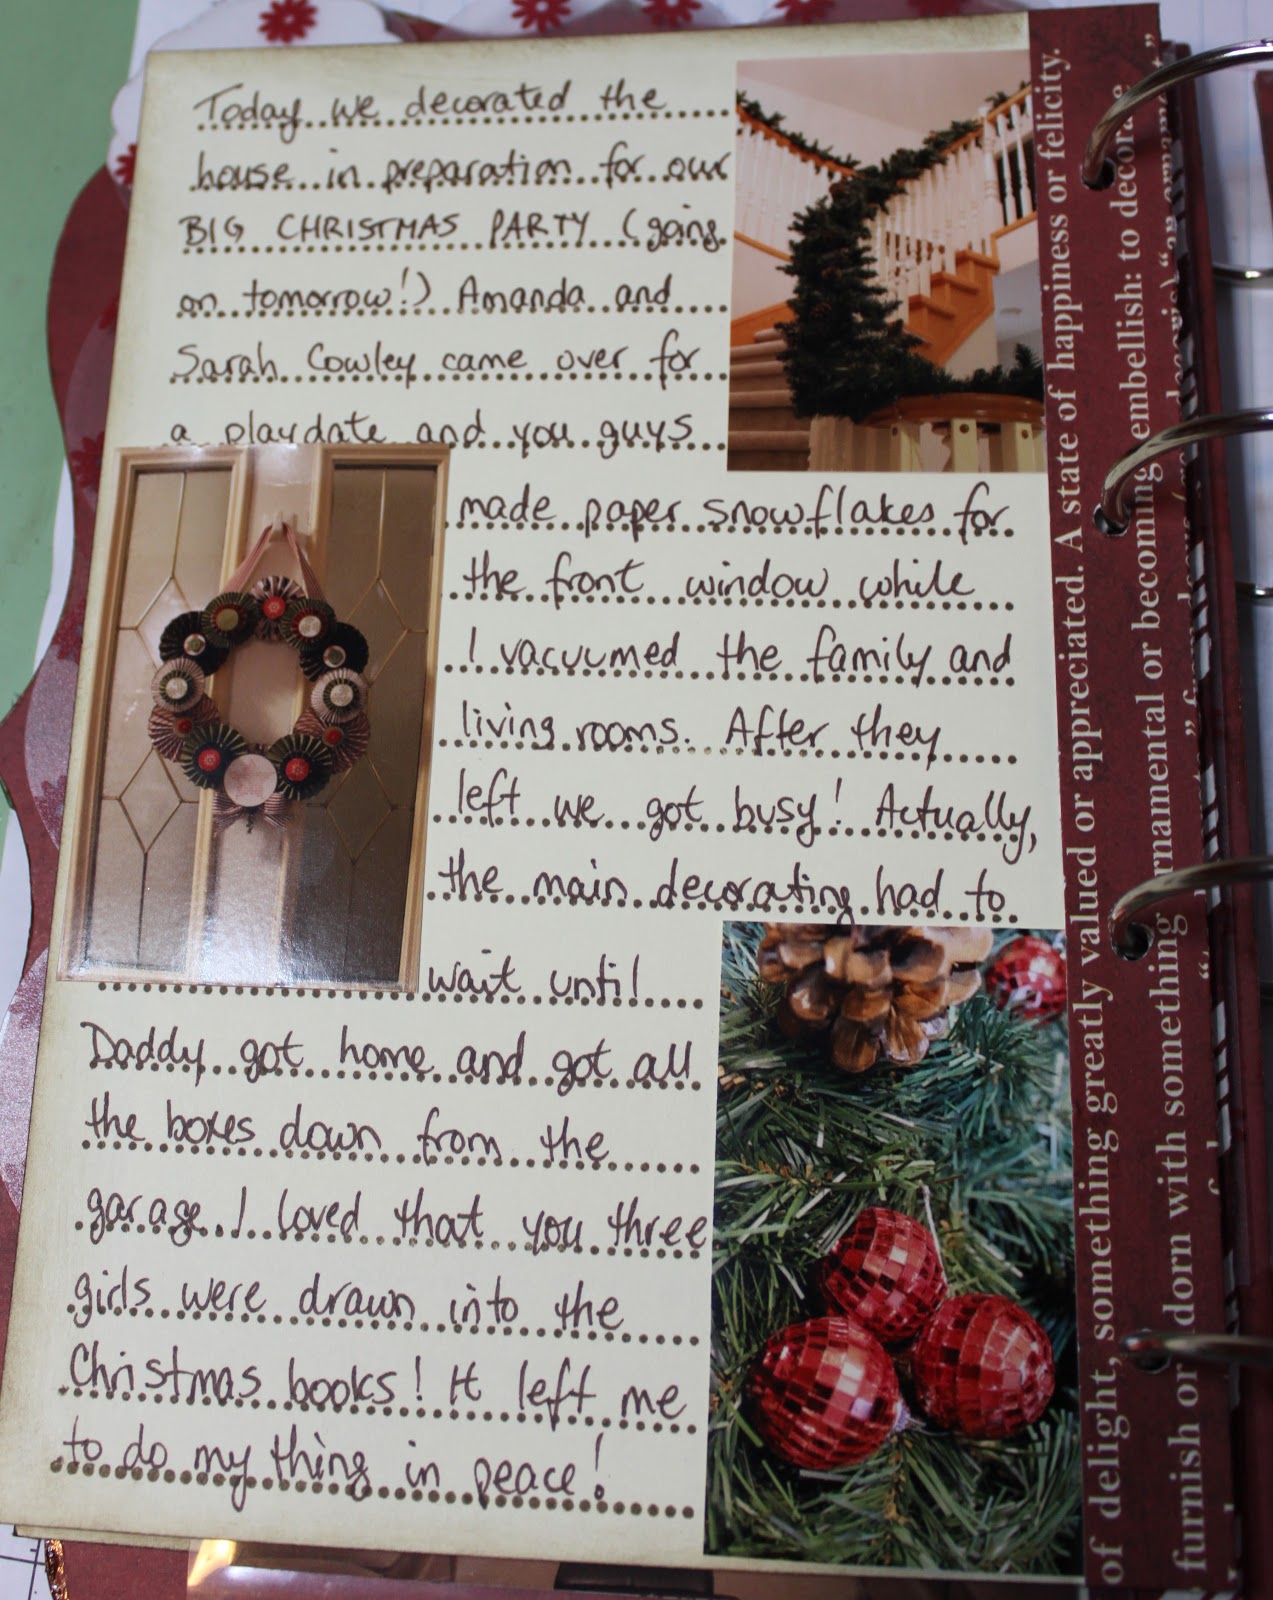 Today we decorated the
house in preparation for our
BIG CHRISTMAS PARTY (going
on tomorrow!) Amanda and
Sarah Cowley came over for
a playdate and you guys
made paper snowflakes for
the front window while
I vacuumed the family and
living rooms. After they
left we got busy! Actually,
the main decorating had to
wait until
Daddy got home and got all
the boxes down from the
garage. I loved that you three
girls were drawn into the
Christmas books! It left me
to do my thing in peace!
of delight, something greatly valued or appreciated. A state of happiness or felicity.
furnish or adorn with something ornamental or becoming embellish: to decorate